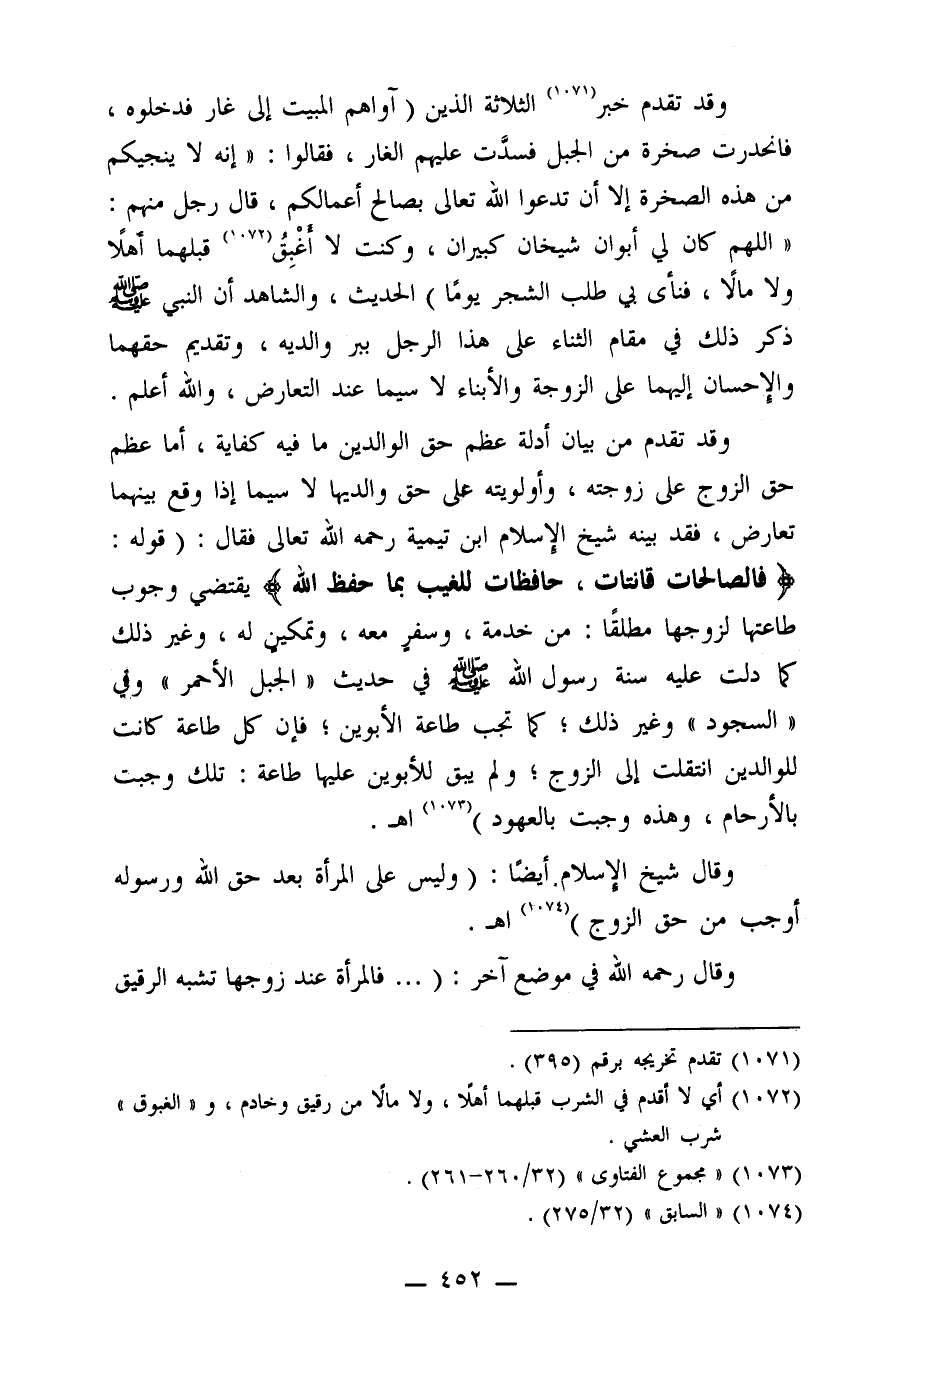 وقد تقدم خبر(١٠٧١) الثلاثة الذين ( آواهم المبيت إلى غار فدخلوه ،
فانحدرت صخرة من الجبل فسدَّت عليهم الغار ، فقالوا : « إنه لا ينجيكم
من هذه الصخرة إلا أن تدعوا الله تعالى بصالح أعمالكم ، قال رجل منهم :
« اللهم كان لي أبوان شيخان كبيران ، وكنت لا أَغْبِقُ(١٠٧٢) قبلهما أهلًا
ولا مالًا ، فنأى بي طلب الشجر يومًا ) الحديث ، والشاهد أن النبي ﷺ
ذكر ذلك في مقام الثناء على هذا الرجل ببر والديه ، وتقديم حقهما
والإحسان إليهما على الزوجة والأبناء لا سيما عند التعارض ، والله أعلم .
وقد تقدم من بيان أدلة عظم حق الوالدين ما فيه كفاية ، أما عظم
حق الزوج على زوجته ، وأولويته على حق والديها لا سيما إذا وقع بينهما
تعارض ، فقد بينه شيخ الإسلام ابن تيمية رحمه الله تعالى فقال : ( قوله :
﴿ فالصالحات قانتات ، حافظات للغيب بما حفظ الله ﴾ يقتضي وجوب
طاعتها لزوجها مطلقًا : من خدمة ، وسفرٍ معه ، وتمكينٍ له ، وغير ذلك
كما دلت عليه سنة رسول الله ﷺ في حديث « الجبل الأحمر » وفي
« السجود » وغير ذلك ؛ كما تجب طاعة الأبوين ؛ فإن كل طاعة كانت
للوالدين انتقلت إلى الزوج ؛ ولم يبق للأبوين عليها طاعة : تلك وجبت
بالأرحام ، وهذه وجبت بالعهود )(١٠٧٣) اهـ .
وقال شيخ الإسلام أيضًا : ( وليس على المرأة بعد حق الله ورسوله
أوجب من حق الزوج )(١٠٧٤) اهـ .
وقال رحمه الله في موضع آخر : ( ... فالمرأة عند زوجها تشبه الرقيق
(١٠٧١) تقدم تخريجه برقم (٣٩٥) .
(١٠٧٢) أي لا أقدم في الشرب قبلهما أهلًا ، ولا مالًا من رقيق وخادم ، و « الغبوق »
شرب العشي .
(١٠٧٣) « مجموع الفتاوى » (٣٢/٢٦٠-٢٦١) .
(١٠٧٤) « السابق » (٣٢/٢٧٥) .
— ٤٥٢ —